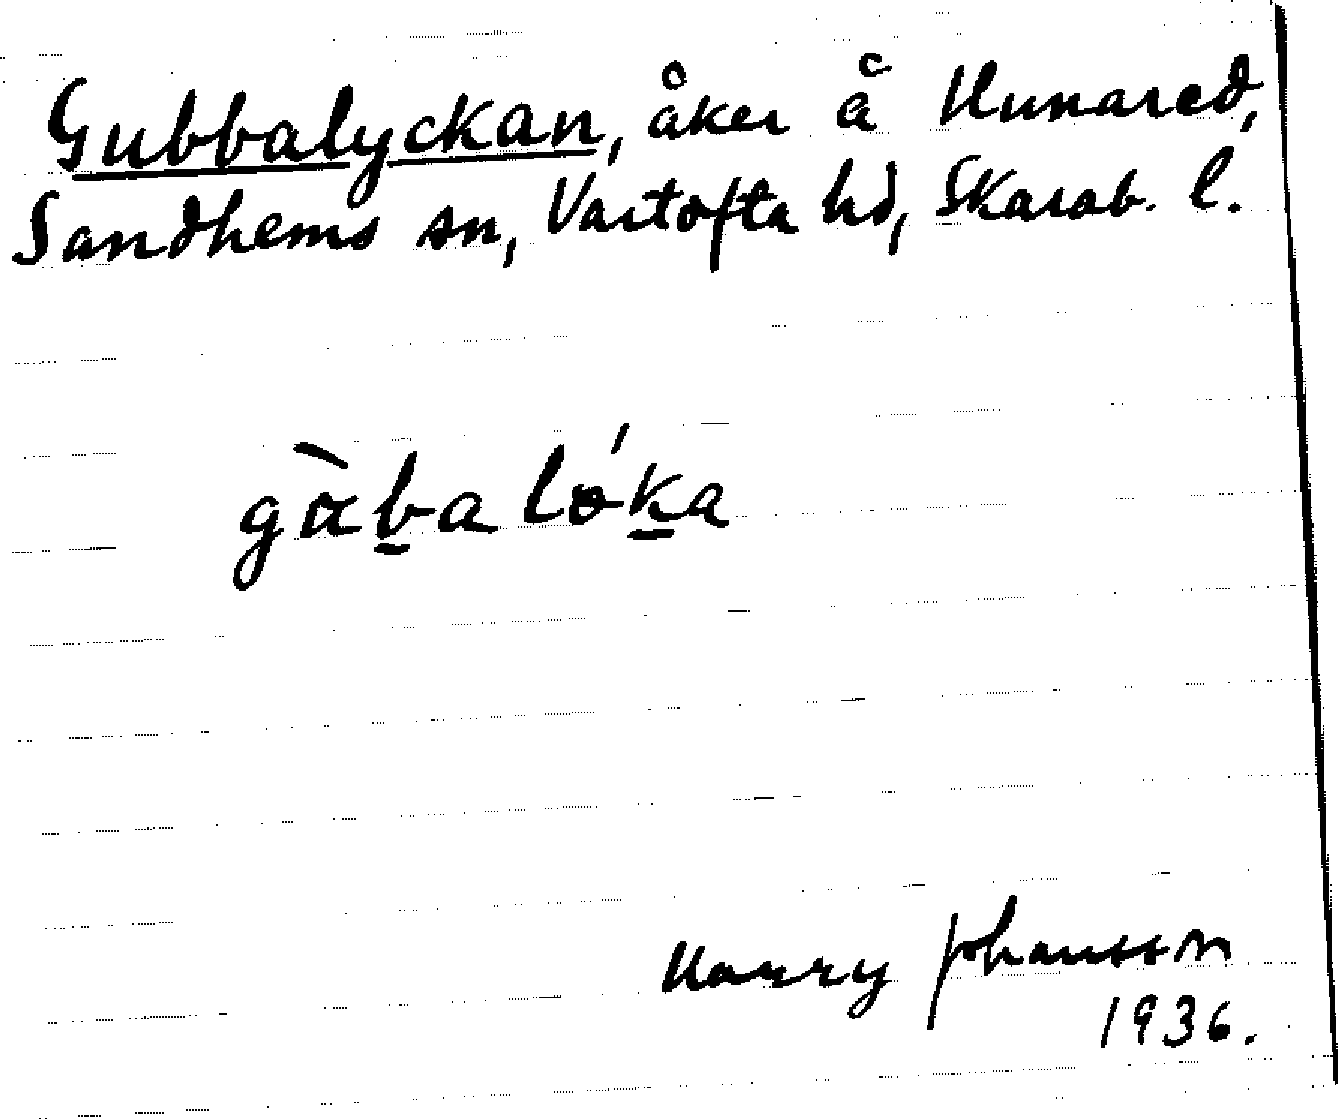 Gubbalyckan, åker å Hunared,
Sandhems sn, Vartofta hd, Skarab. l.
gὰb̲a lók̲a
Harry Johansson
1936.